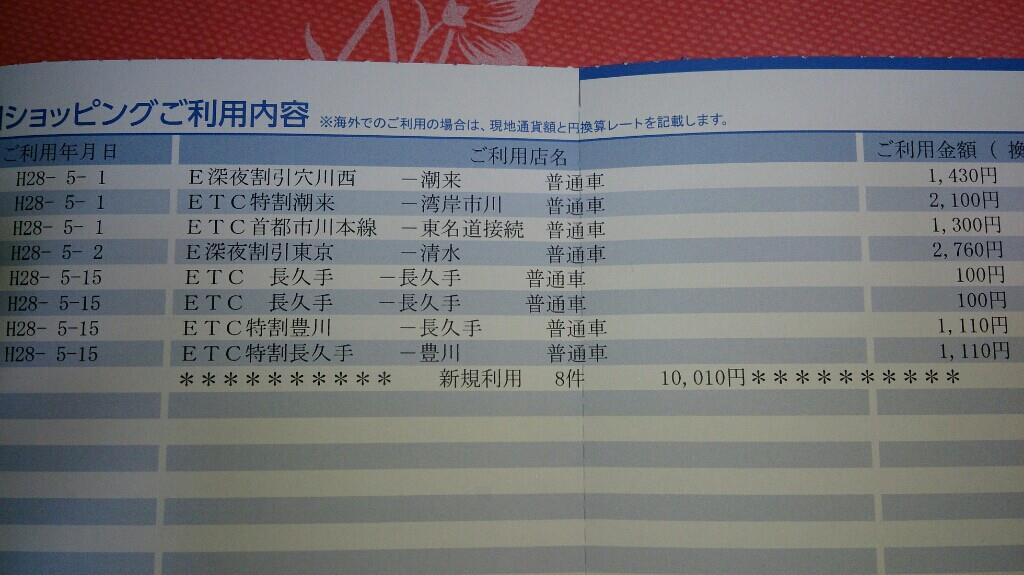 ショッピングご利用内容 ※海外でのご利用の場合は、現地通貨額と円換算レートを記載します。
ご利用年月日 ご利用店名 ご利用金額（換
H28- 5- 1 Ｅ深夜割引穴川西 －潮来 普通車 1,430円
H28- 5- 1 ＥＴＣ特割潮来 －湾岸市川 普通車 2,100円
H28- 5- 1 ＥＴＣ首都市川本線 －東名道接続 普通車 1,300円
H28- 5- 2 Ｅ深夜割引東京 －清水 普通車 2,760円
H28- 5-15 ＥＴＣ 長久手 －長久手 普通車 100円
H28- 5-15 ＥＴＣ 長久手 －長久手 普通車 100円
H28- 5-15 ＥＴＣ特割豊川 －長久手 普通車 1,110円
H28- 5-15 ＥＴＣ特割長久手 －豊川 普通車 1,110円
＊＊＊＊＊＊＊＊＊＊ 新規利用 8件 10,010円＊＊＊＊＊＊＊＊＊＊